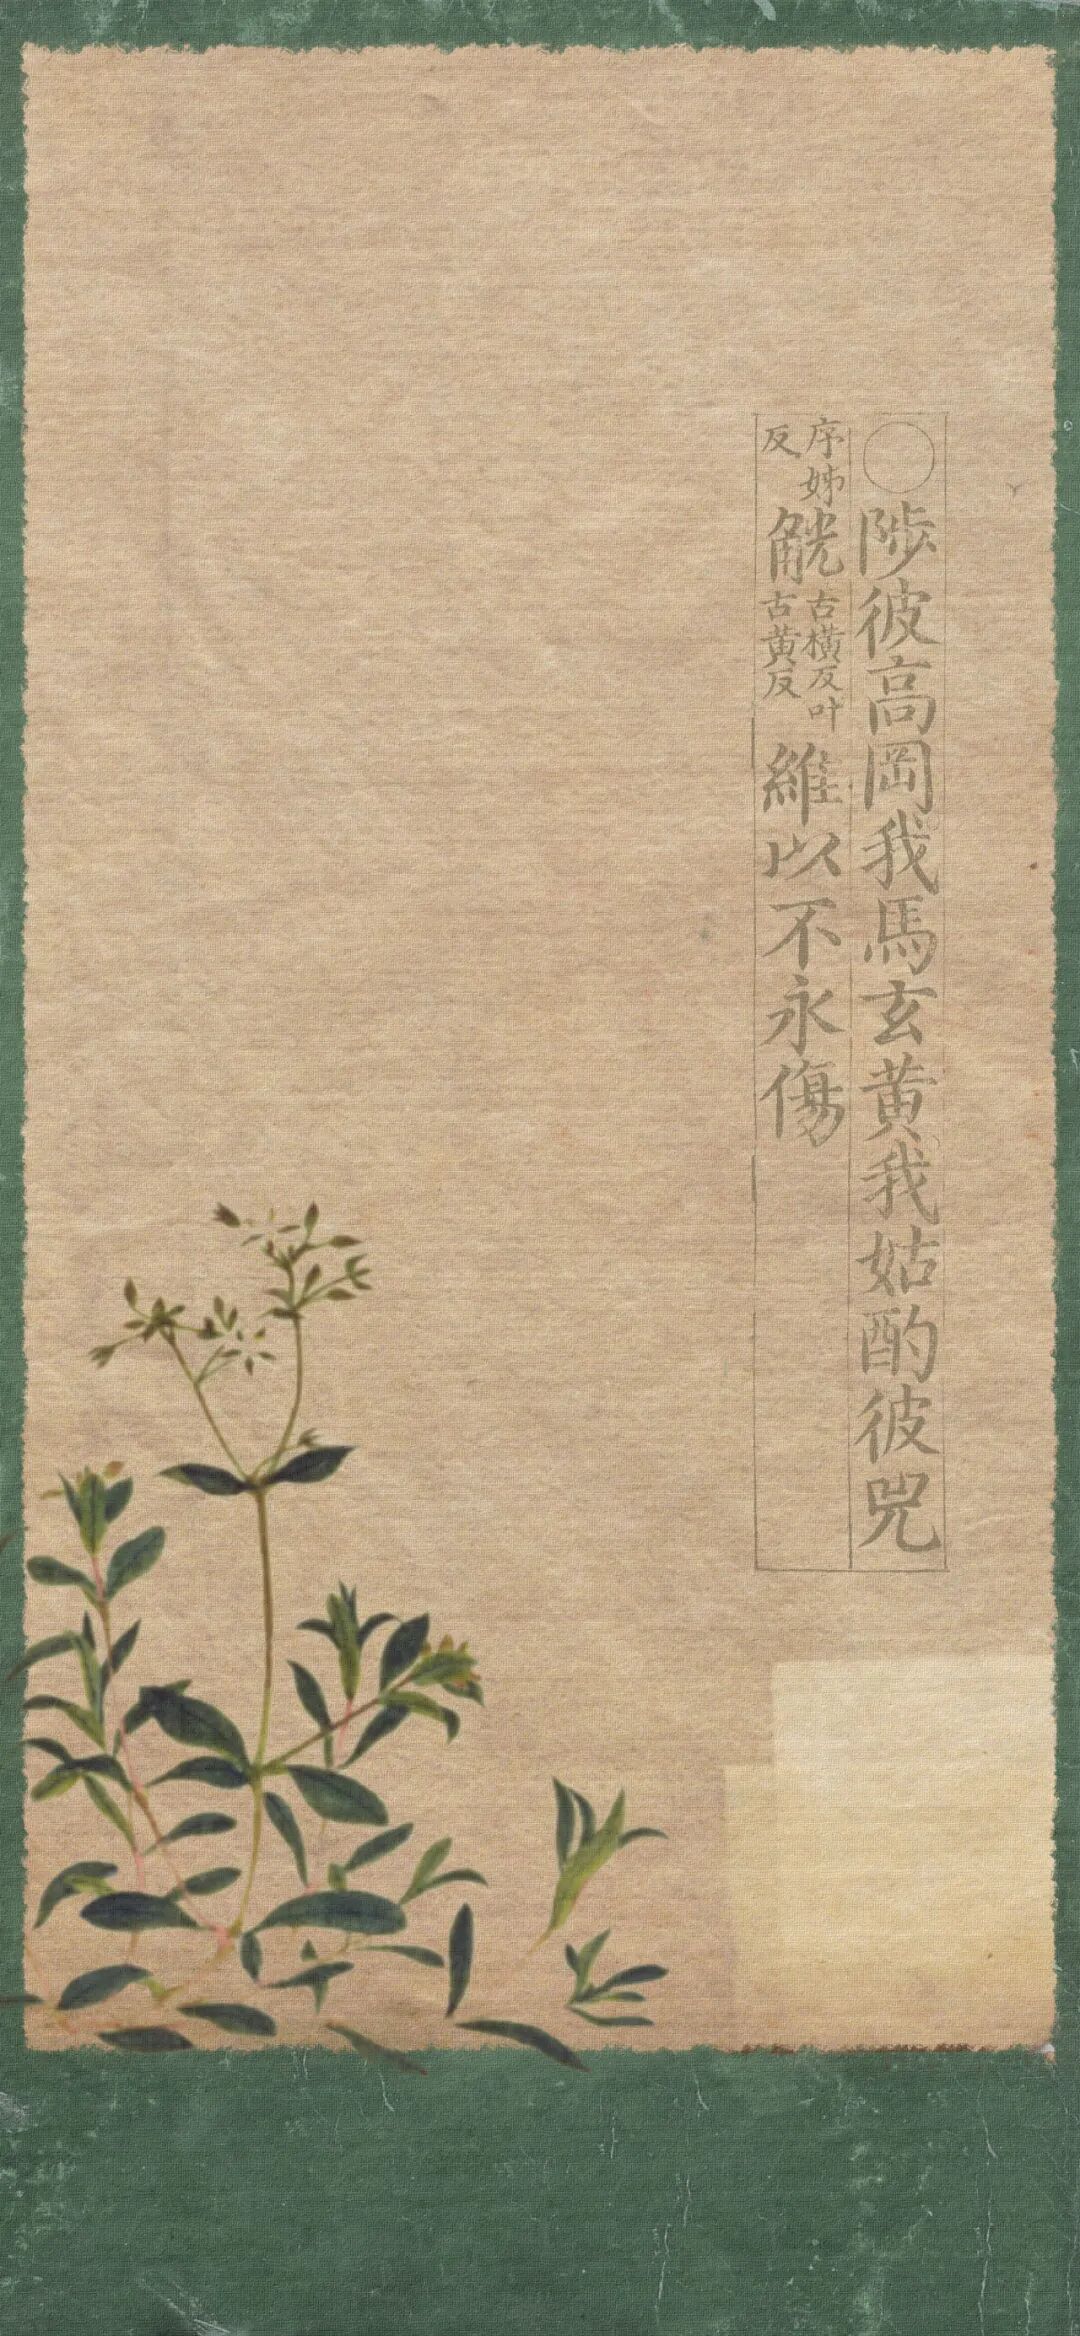 ○陟彼高岡我馬玄黃我姑酌彼兕
序姊反觥古橫反叶古黃反維以不永傷